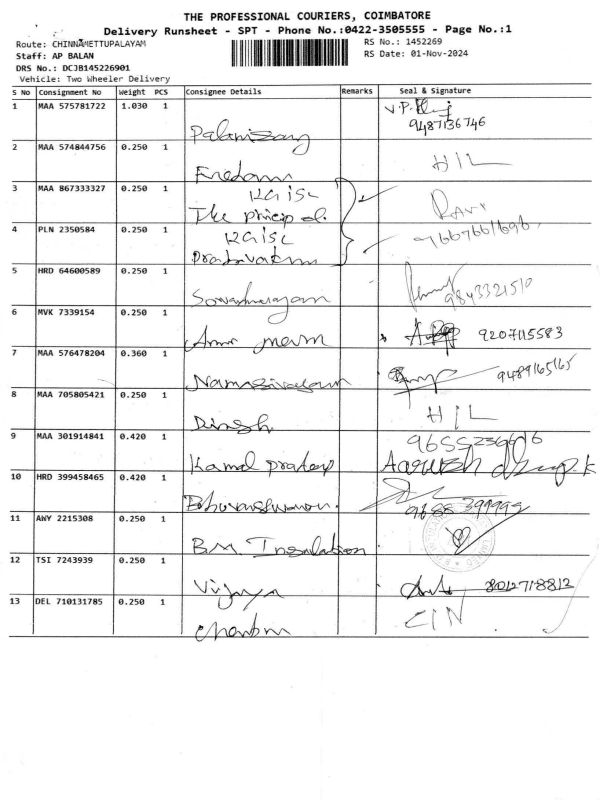 THE PROFESSIONAL COURIERS, COIMBATORE
Delivery Runsheet - SPT - Phone No.:0422-3505555 - Page No.:1
Route: CHINNAMETTUPALAYAM
RS No.: 1452269
Staff: AP BALAN
RS Date: 01-Nov-2024
DRS No.: DCJB145226901
Vehicle: Two Wheeler Delivery
S No Consignment No Weight PCS Consignee Details Remarks Seal & Signature
1 MAA 575781722 1.030 1
9487136746
2 MAA 574844756 0.250 1
Freedom HIL
3 MAA 867333327 0.250 1 KGiSL
The princip al. Ravi
4 PLN 2350584 0.250 1 KGiSL 9667661696
5 HRD 64600589 0.250 1
9843321510
6 MVK 7339154 0.250 1
mam 9207115583
7 MAA 576478204 0.360 1
Namasivayam 9489165165
8 MAA 705805421 0.250 1
Dinesh HIL
9 MAA 301914841 0.420 1
Kamal pratap
10 HRD 399458465 0.420 1
Bhuvaneswaran.
11 AWY 2215308 0.250 1
B.M. Insulation
12 TSI 7243939 0.250 1
Vijaya 8012718812
13 DEL 710131785 0.250 1
CIN